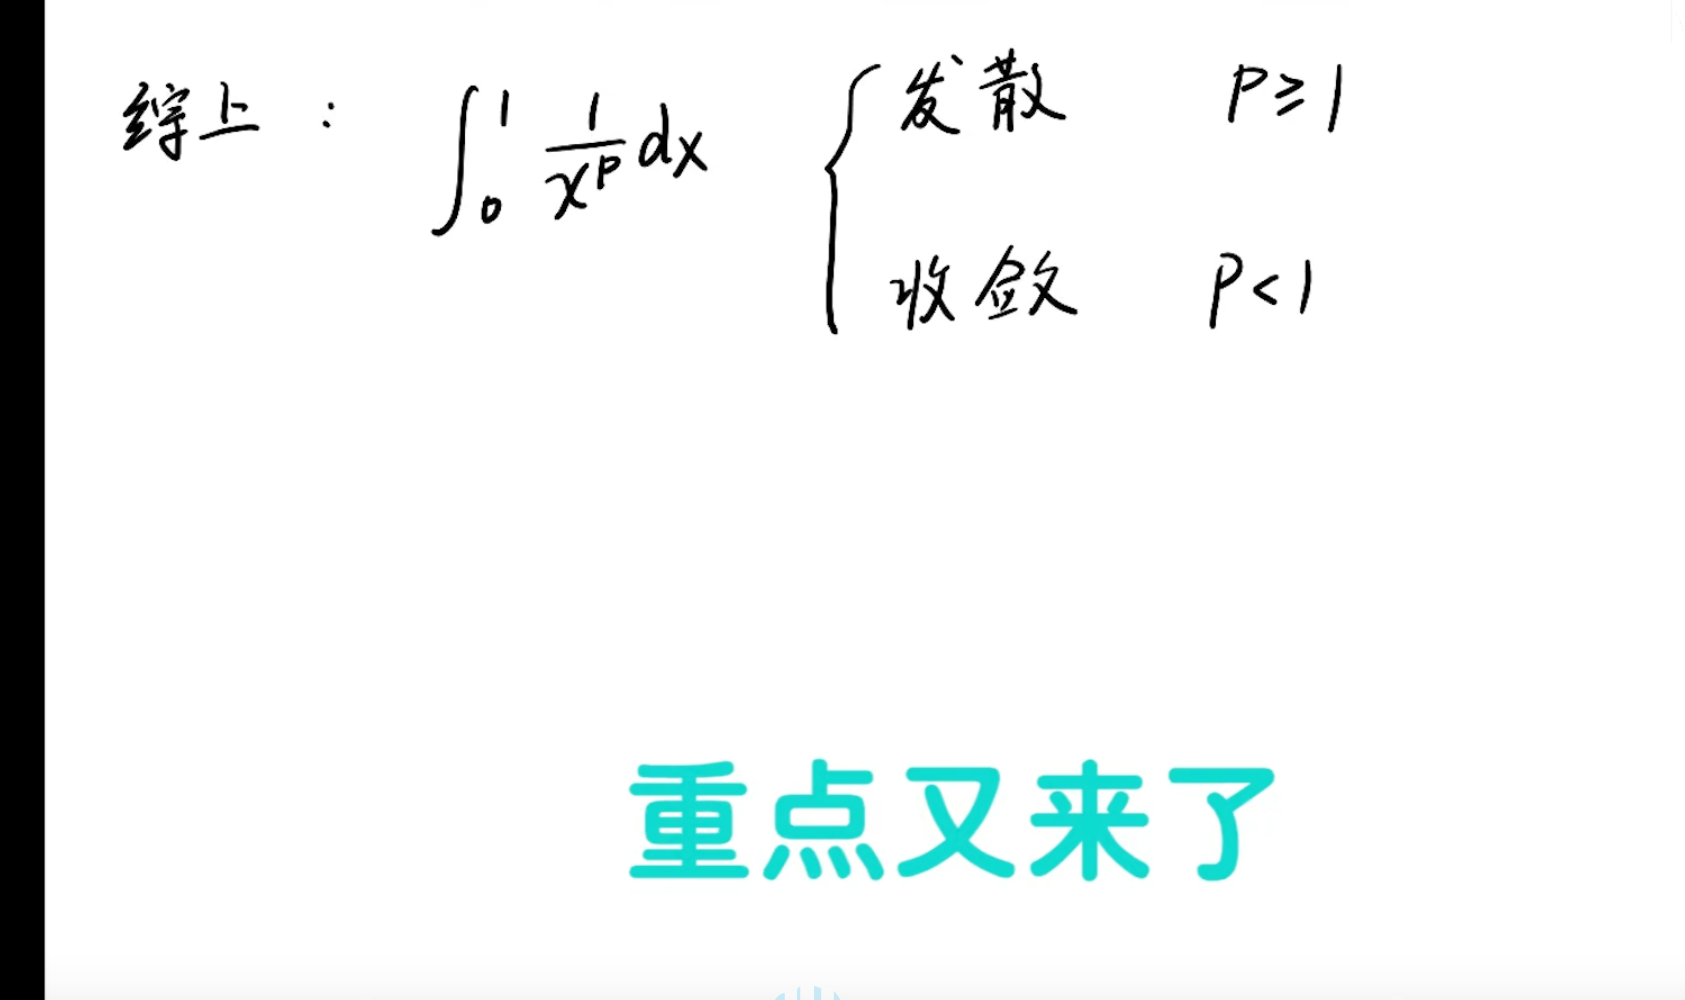 综上： ∫₀¹ 1/xᵖ dx { 发散 P≥1
收敛 P<1
重点又来了